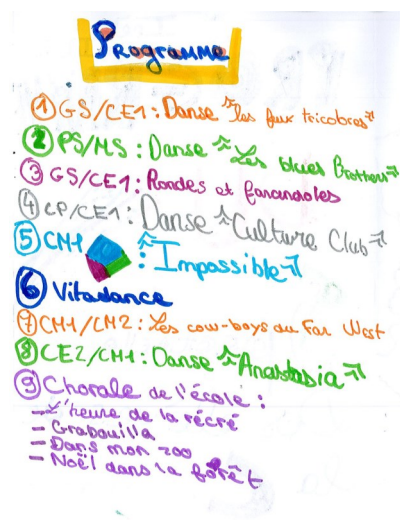 Programme
① GS/CE1 : Danse "les feux tricolores"
② PS/MS : Danse "Les blues Brothers"
③ GS/CE1 : Rondes et farandoles
④ CP/CE1 : Danse "Culture Club"
⑤ CM1 : "Impossible"
⑥ Vitadance
⑦ CM1/CM2 : Les cow-boys du Far West
⑧ CE2/CM1 : Danse "Anastasia"
⑨ Chorale de l'école :
- L'heure de la récré
- Grabouilla
- Dans mon zoo
- Noël dans la forêt